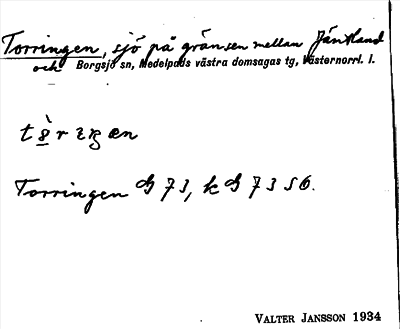 Torringen, sjö på gränsen mellan Jämtland
och Borgsjö sn, Medelpads västra domsagas tg, Västernorrl. l.
Torringen G 73, k G 73 S Ö.
VALTER JANSSON 1934